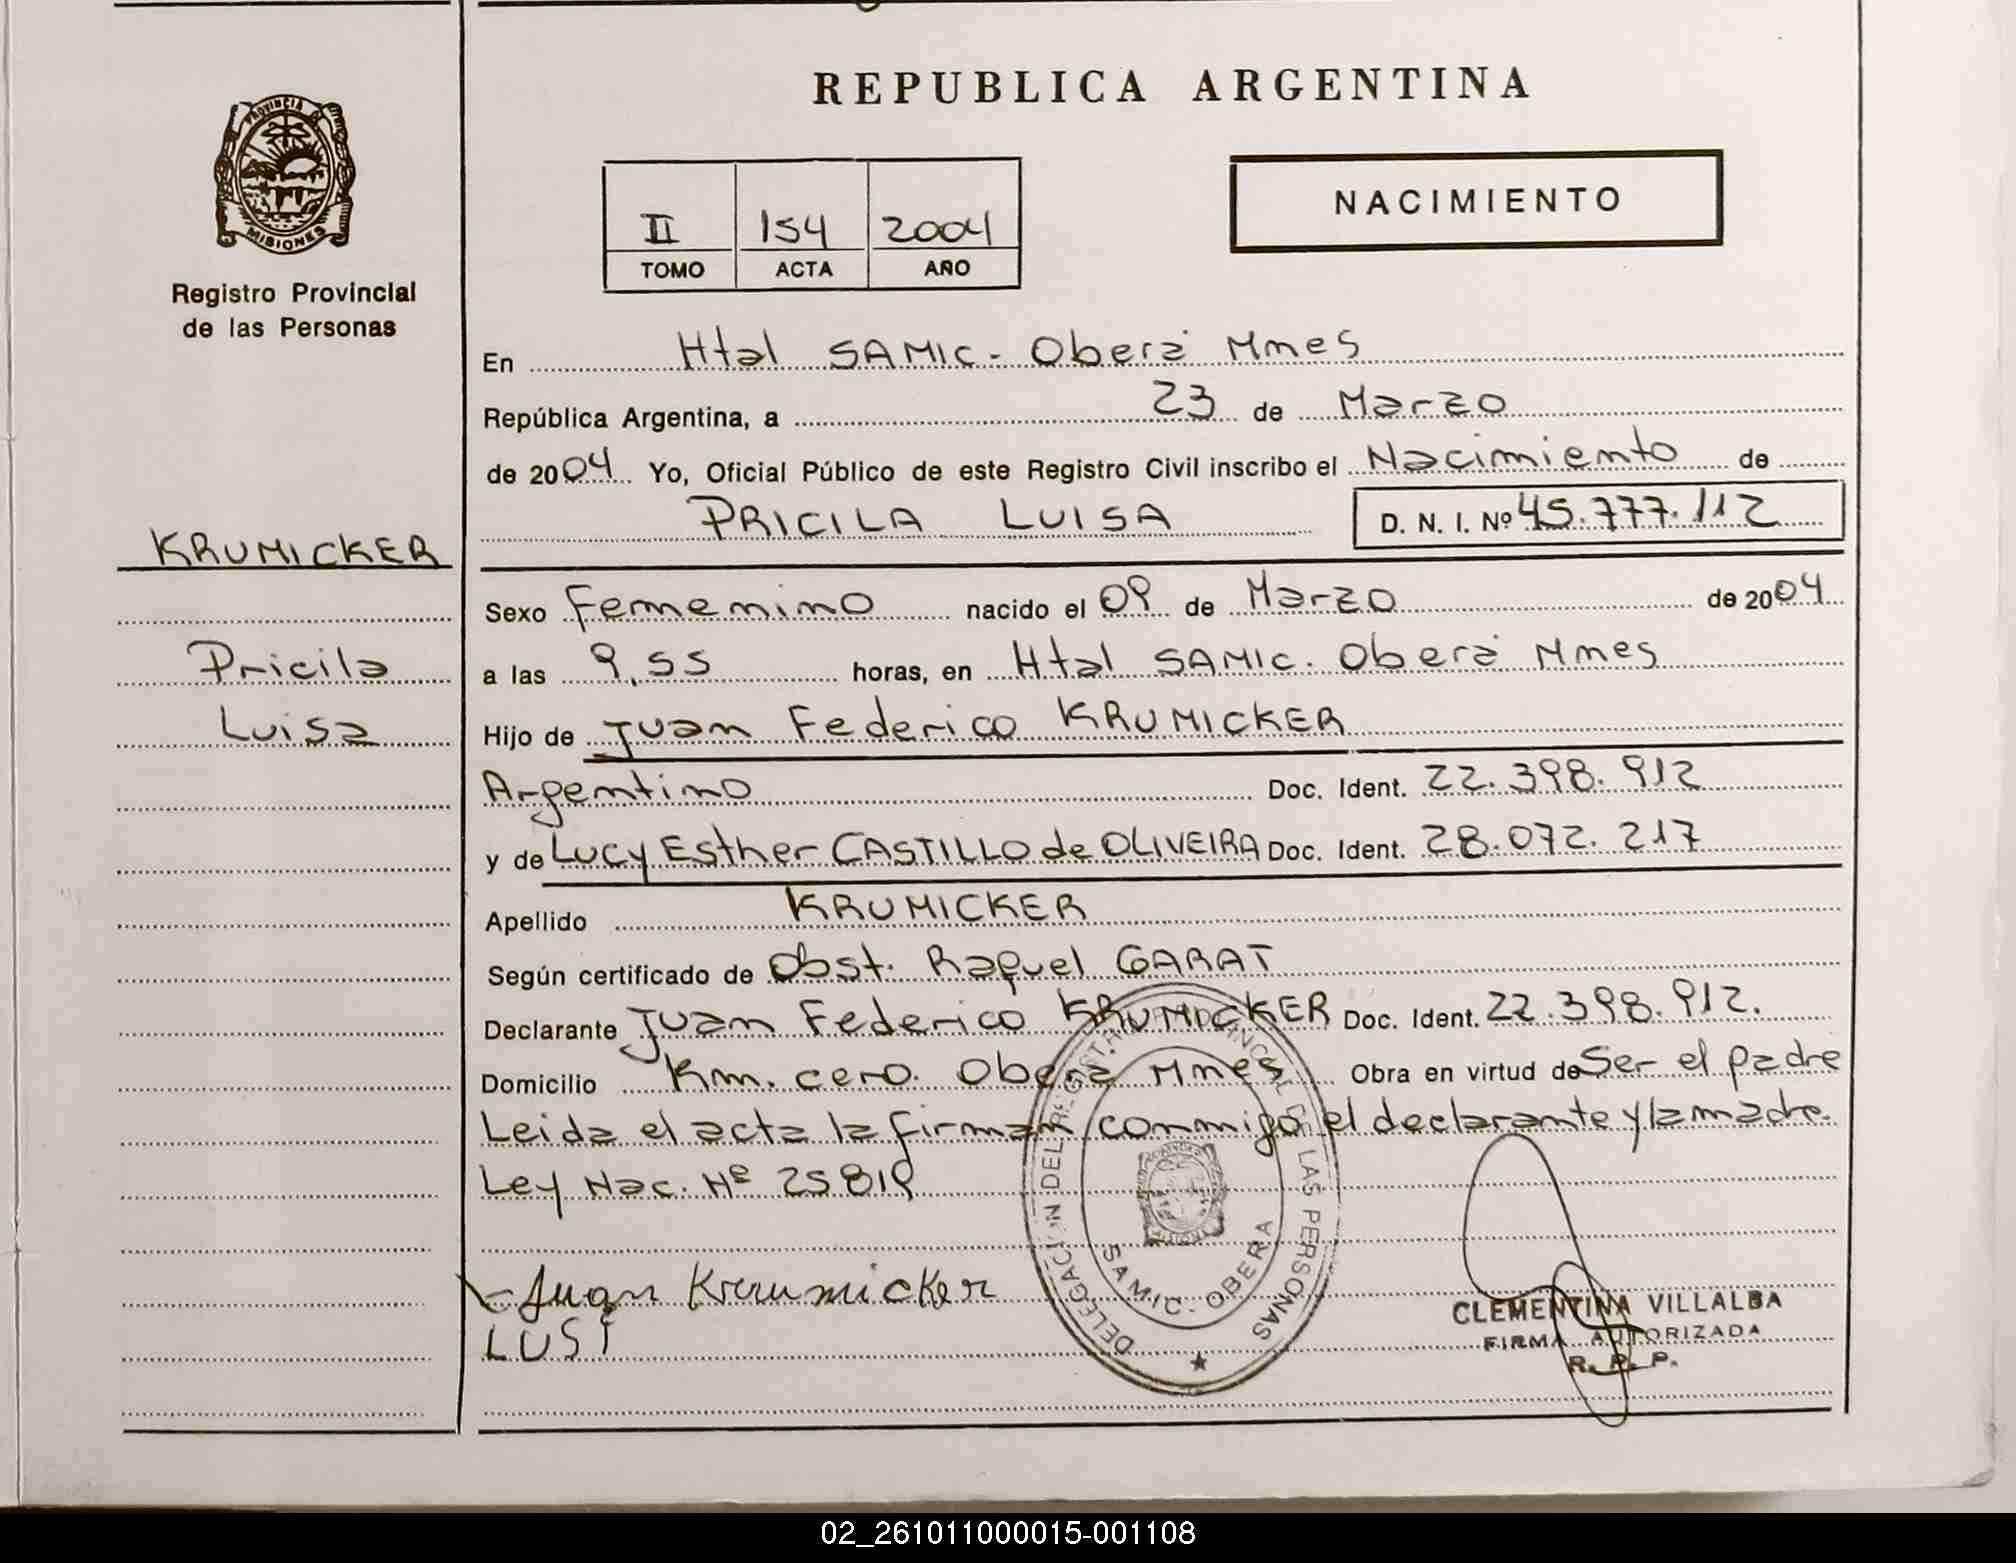 REPUBLICA ARGENTINA
PROVINCIA
MISIONES
Registro Provincial
de las Personas
II 154 2004
TOMO ACTA AÑO
NACIMIENTO
En Htal SAMIC - Oberá Mnes
República Argentina, a 23 de Marzo
de 2004 Yo, Oficial Público de este Registro Civil inscribo el Nacimiento de
PRICILA LUISA D. N. I. Nº 45.777.112
KRUMICKER
Pricila
Luisa
Sexo Femenino nacido el 09 de Marzo de 2004
a las 9,55 horas, en Htal SAMIC. Oberá Mnes
Hijo de Juan Federico KRUMICKER
Argentino Doc. Ident. 22.398.912
y de Lucy Esther CASTILLO de OLIVEIRA Doc. Ident. 28.072.217
Apellido KRUMICKER
Según certificado de Obst. Raquel GARAT
Declarante Juan Federico KRUMICKER Doc. Ident. 22.398.912.
Domicilio Km. cero. Oberá Mnes Obra en virtud de Ser el padre
Leida el acta la firman conmigo el declarante y la madre.
Ley Nac. Nº 25819
Juan Krumicker
DELEGACION DEL REGISTRO PROVINCIAL DE LAS PERSONAS
SAMIC - OBERA
CLEMENTINA VILLALBA
FIRMA AUTORIZADA
R. P. P.
02_261011000015-001108